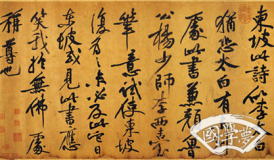 東坡此詩似李太白
猶恐太白有未到
處此書兼顏魯
公楊少師李西臺
筆意試使東坡
復為之未必及此它日
東坡或見此書應
笑我於無佛處
稱尊也
國學夢